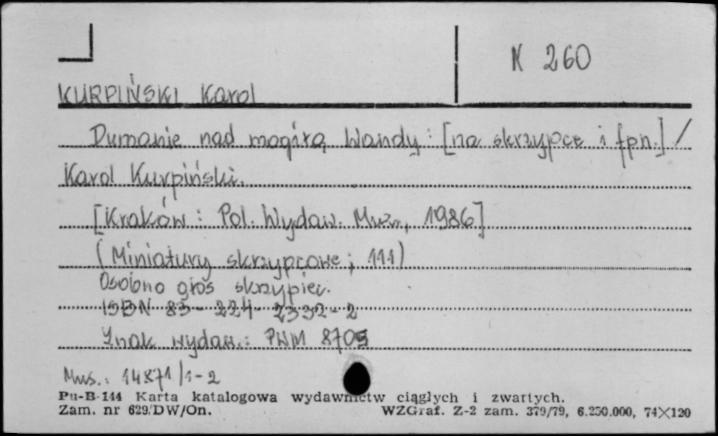 K 260
KURPIŃSKI Karol
Dumanie nad mogiłą Wandy : [na skrzypce i fpn.] /
Karol Kurpiński.
[Kraków : Pol. Wydaw. Muz., 1986]
(Miniatury skrzypcowe ; 111)
Osobno głos skrzypiec.
ISBN 83-224-2332-2
Znak wydaw.: PWM 8705
Mus.: 14871/1-2
Pu-B-144 Karta katalogowa wydawnictw ciągłych i zwartych.
Zam. nr 629/DW/On. WZGraf. Z-2 zam. 379/79, 6.250.000, 74×120